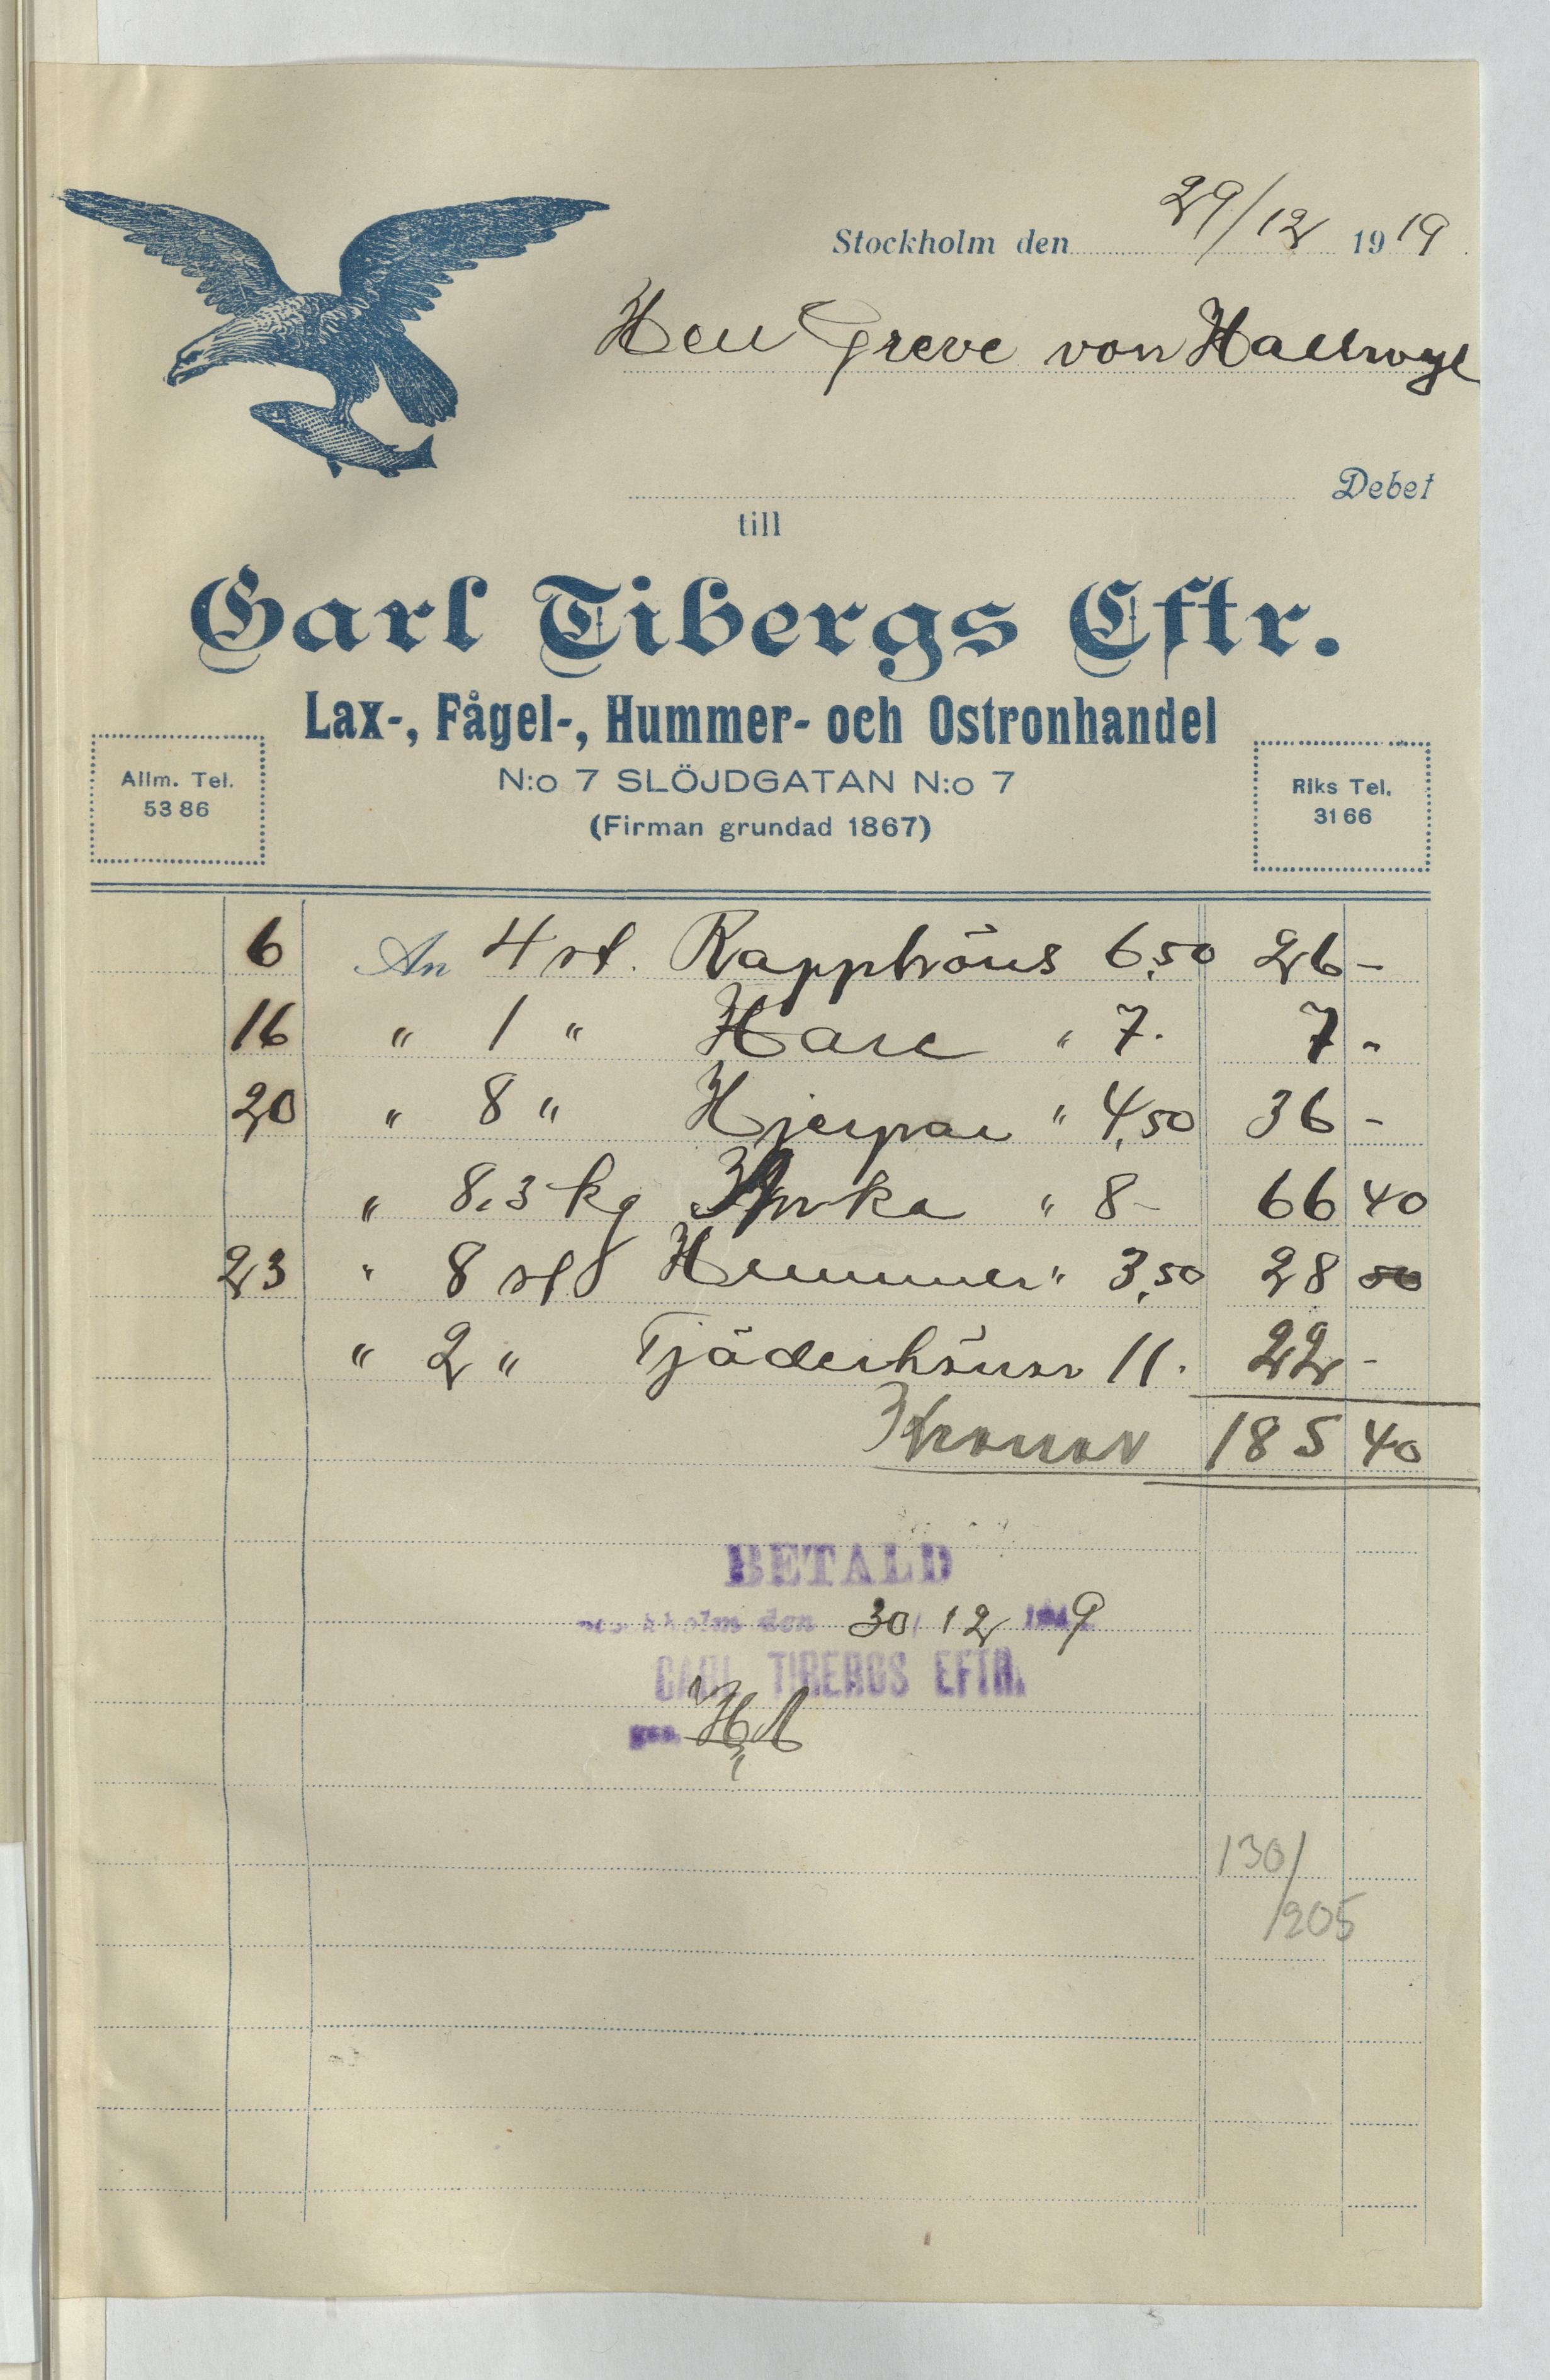 Stockholm den 29/12 1919
Herr Greve von Hallwyl
Debet
till
Carl Tibergs Eftr.
Lax-, Fågel-, Hummer- och Ostronhandel
Allm. Tel. 5386
N:o 7 SLÖJDGATAN N:o 7
Riks Tel. 3166
(Firman grundad 1867)
6 An 4 st. Rapphöns 6,50 26 -
16 " 1 " Hare " 7. 7 -
20 " 8 " Hjerpar " 4,50 36 -
" 8,3 kg " 8- 66 40
23 " 8 st Hummer " 3,50 28 50
" 2 " Tjäderhönor 11. 22 -
Kronor 185 40
BETALD
Stockholm den 30/12 1919
CARL TIBERGS EFTR.
gm HA
130/
/205